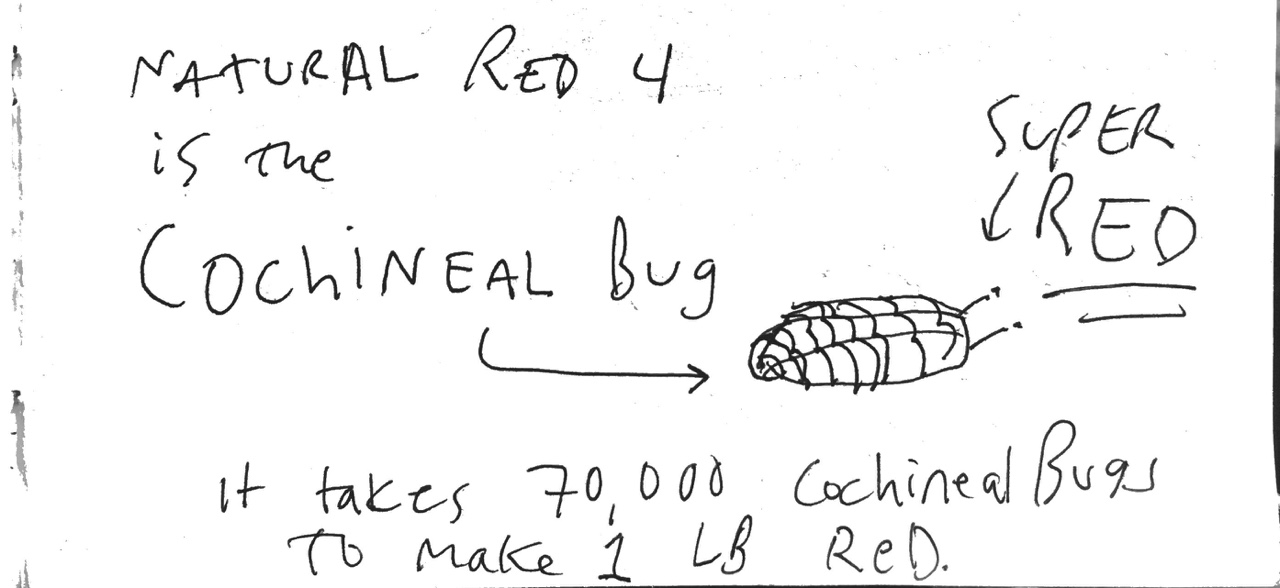 NATURAL RED 4
is the
COCHINEAL Bug
SUPER
RED
it takes 70,000 Cochineal Bugs
To Make 1 LB ReD.